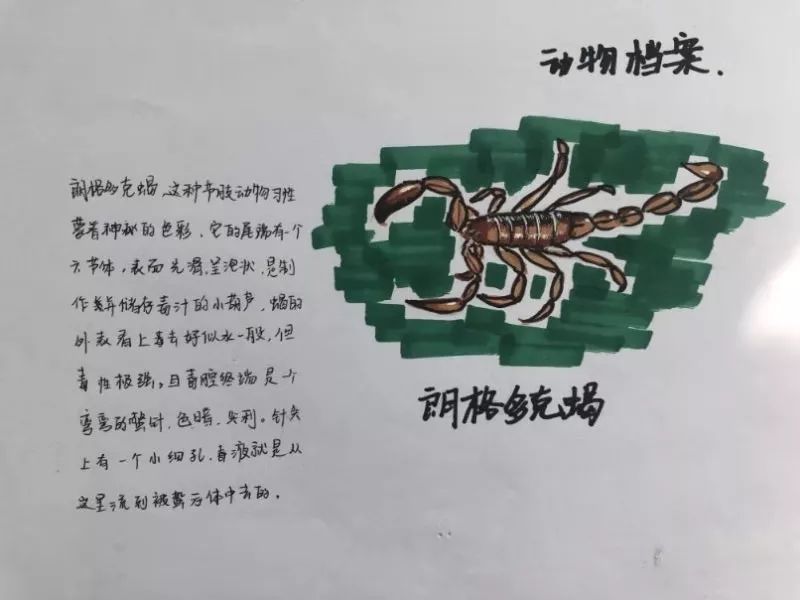 动物档案.
朗格多克蝎,这种节肢动物习性
蒙着神秘的色彩,它的尾端有一个
六节体,表面光滑,呈泡状,是制
作并储存毒汁的小葫芦,蝎的
外表看上毒去好似水一般,但
毒性极强。且毒腔终端是一个
弯弯的蜇针,色暗,尖利。针尖
上有一个小细孔,毒液就是从
这里流到被螫方体中去的。
朗格多克蝎